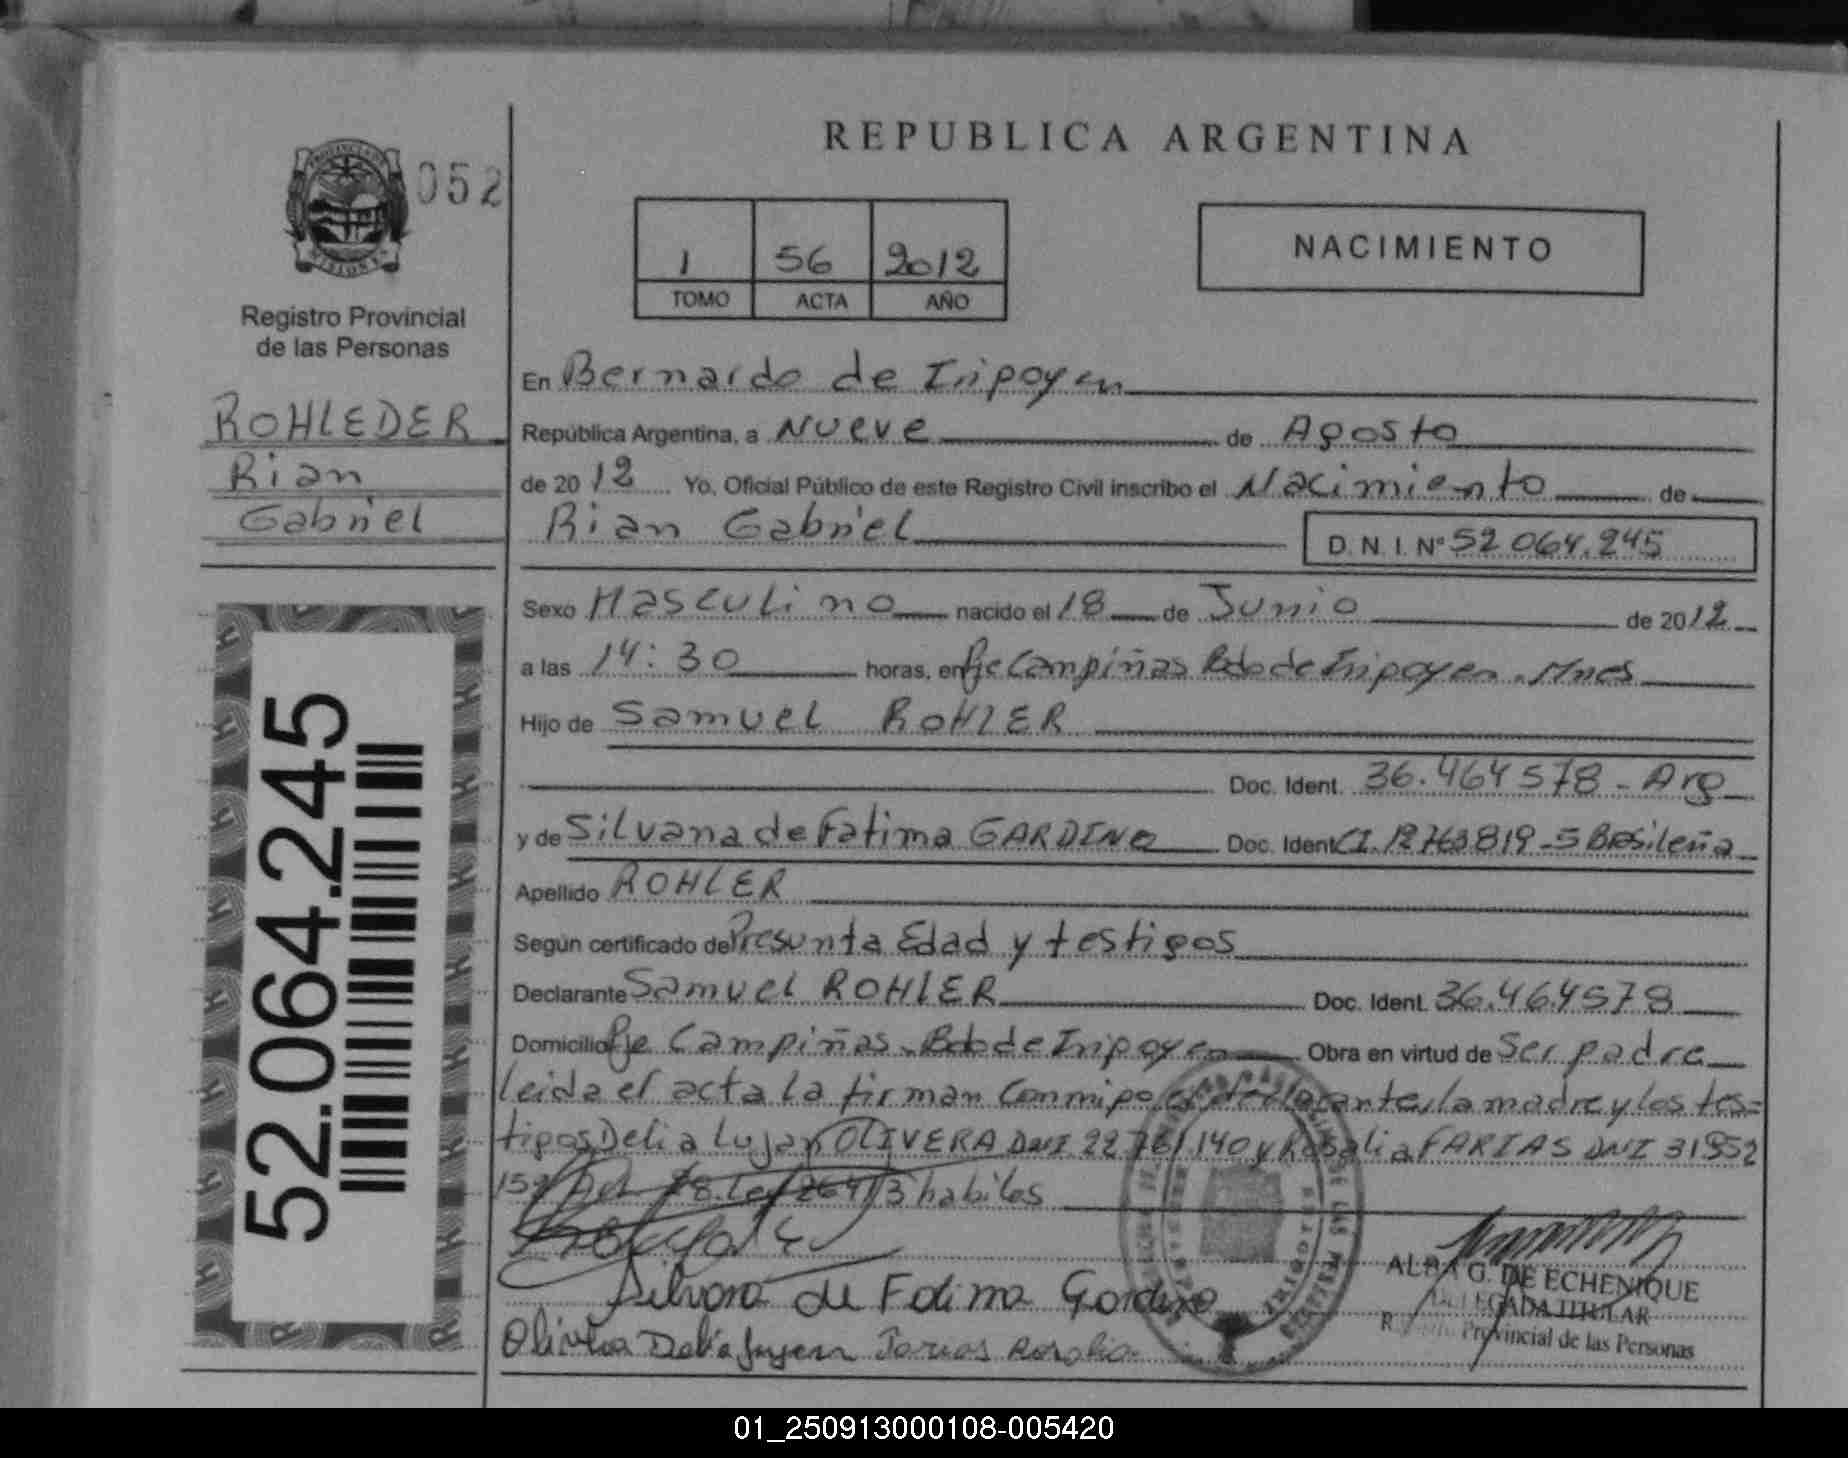 REPUBLICA ARGENTINA
052
1 56 2012
TOMO ACTA AÑO
NACIMIENTO
Registro Provincial
de las Personas
ROHLEDER
Rian
Gabriel
52.064.245
En Bernardo de Iripoyen
República Argentina, a Nueve de Agosto
de 2012 Yo, Oficial Público de este Registro Civil inscribo el Nacimiento de
Rian Gabriel D. N. I. Nº 52 064.245
Sexo Masculino nacido el 18 de Junio de 2012
a las 14:30 horas, en Pje Campiñas Bdo de Iripoyen. Mnes
Hijo de Samuel ROHLER
Doc. Ident. 36.464578 - Arg
y de Silvana de Fatima GARDINO Doc. Ident CI. 12763819-5 Brasileña
Apellido ROHLER
Según certificado de Presunta Edad y testigos
Declarante Samuel ROHLER Doc. Ident. 36.464578
Domicilio Pje Campiñas. Bdo de Iripoyen Obra en virtud de Ser padre
leida el acta la firman conmigo el declarante, la madre y los tes=
tigos Delia Lujan OLIVERA DNI 22 761.140 y Rosalia FARIAS DNI 31952
157 habiles
Silvana de Fatima Gardino
Olivera Delia Farias Rosalia
ALBA G. DE ECHENIQUE
DELEGADA TITULAR
Provincial de las Personas
01_250913000108-005420